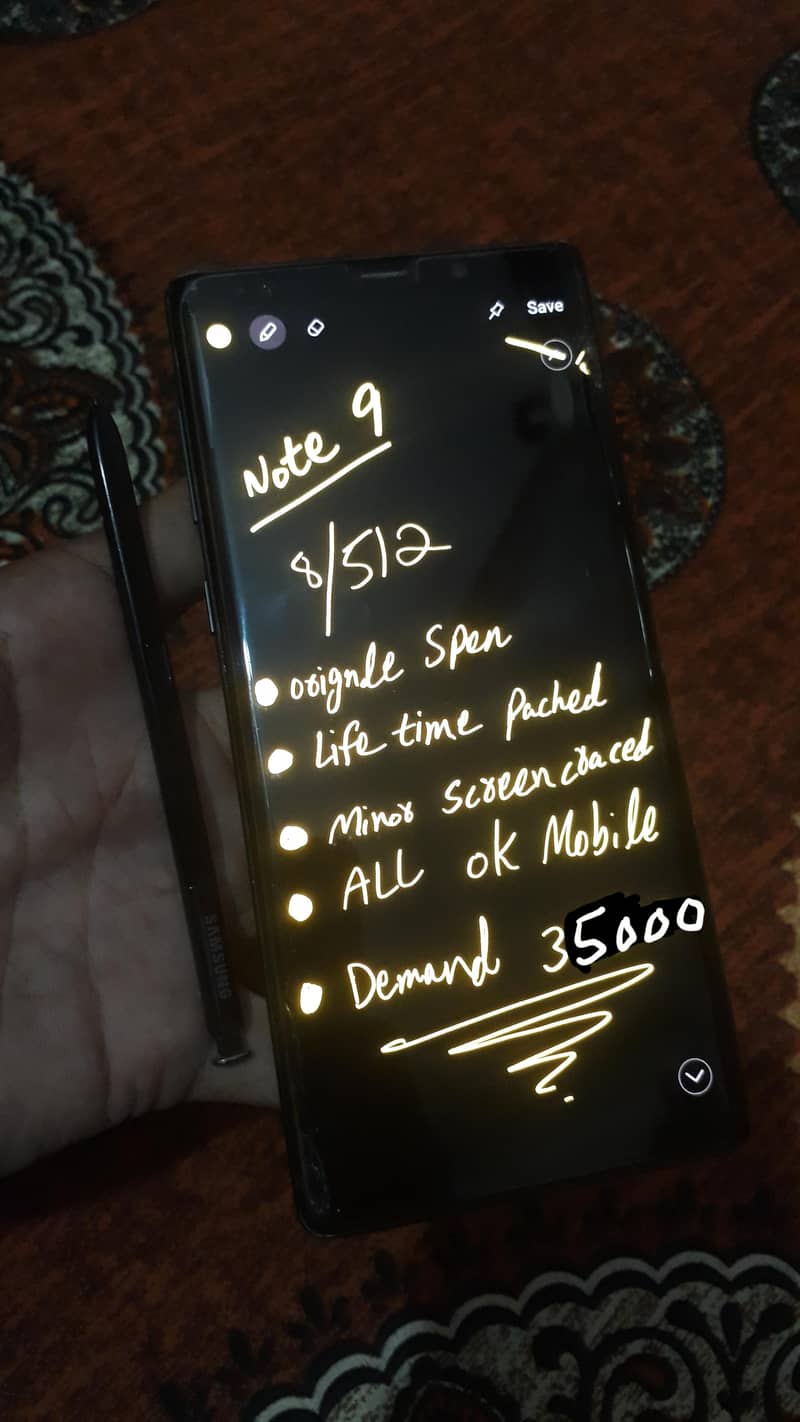 Save
Note 9
8/512
• orignle Spen
• Life time Pached
• Minor screen craced
• ALL ok Mobile
• Demand 35000
SAMSUNG